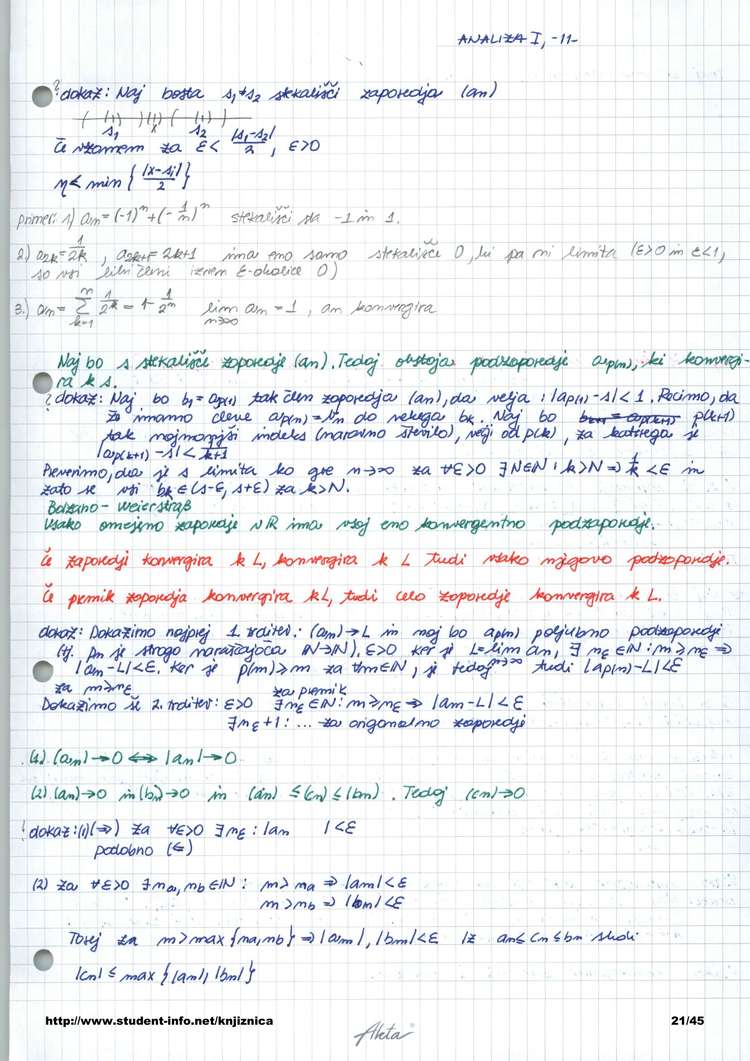 ANALIZA I, -11-
? dokaz: Naj bosta s₁≠s₂ stekališči zaporedja (an)
s₁ x s₂
Če vzamem za ε < |s₁-s₂|/2 , ε>0
η < min { |x-si|/2 }
primeri: 1) an = (-1)ⁿ + (-1/n)ⁿ stekališči sta -1 in 1.
2) a2k = 1/2k , a2k+1 = 2k+1 ima eno samo stekališče 0, ki pa ni limita (ε>0 in ε<1,
so vsi lihi členi izven ε-okolice 0)
3.) an = Σ k=1 n 1/2ᵏ = 1 - 1/2ⁿ lim n→∞ an = 1 , an konvergira
Naj bo s stekališče zaporedje (an). Tedaj obstaja podzaporedje ap(n), ki konvergi-
ra k s.
? dokaz: Naj bo b₁ = ap(1) tak člen zaporedja (an), da velja : |ap(1) - s| < 1. Recimo, da
že imamo člene ap(n) = bn do nekega bk. Naj bo p(k+1)
tak najmanjši indeks (naravno število), večji od p(k), za katerega je
|ap(k+1) - s| < 1/k+1
Preverimo, da je s limita ko gre n→∞ za ∀ε>0 ∃N∈ℕ : k>N ⇒ 1/k < ε in
zato se vsi bk ∈ (s-ε, s+ε) za k>N.
Bolzano - Weierstraß
Vsako omejeno zaporedje v ℝ ima vsaj eno konvergentno podzaporedje.
Če zaporedji konvergira k L, konvergira k L tudi vsako njegovo podzaporedje.
Če premik zaporedja konvergira k L, tudi celo zaporedje konvergira k L.
dokaz: Dokažimo najprej 1. trditev: (an)→L in naj bo ap(n) poljubno podzaporedje
(tj. pn je strogo naraščajoča ℕ→ℕ). ε>0 ker je L=lim n→∞ an, ∃ nε∈ℕ : n≥nε ⇒
|an-L|<ε. Ker je p(n)≥n za ∀n∈ℕ, je tedaj tudi |ap(n)-L|<ε
za n≥nε
Dokažimo še 2. trditev: ε>0 za premik ∃nε∈ℕ : n≥nε ⇒ |an-L|<ε
∃nε+1 : ... za originalno zaporedje
(1) (an)→0 ⇔ |an|→0
(2) (an)→0 in (bn)→0 in (an) ≤ (cn) ≤ (bn) . Tedaj (cn)→0
! dokaz: (1)(⇒) za ∀ε>0 ∃nε : |an |<ε
podobno (⇐)
(2) za ∀ε>0 ∃na, nb∈ℕ : n>na ⇒ |an|<ε
n>nb ⇒ |bn|<ε
Torej za n>max{na,nb} ⇒ |an|, |bn|<ε Iz an≤cn≤bn sledi
|cn| ≤ max{|an|, |bn|}
http://www.student-info.net/knjiznica 21/45
Akta